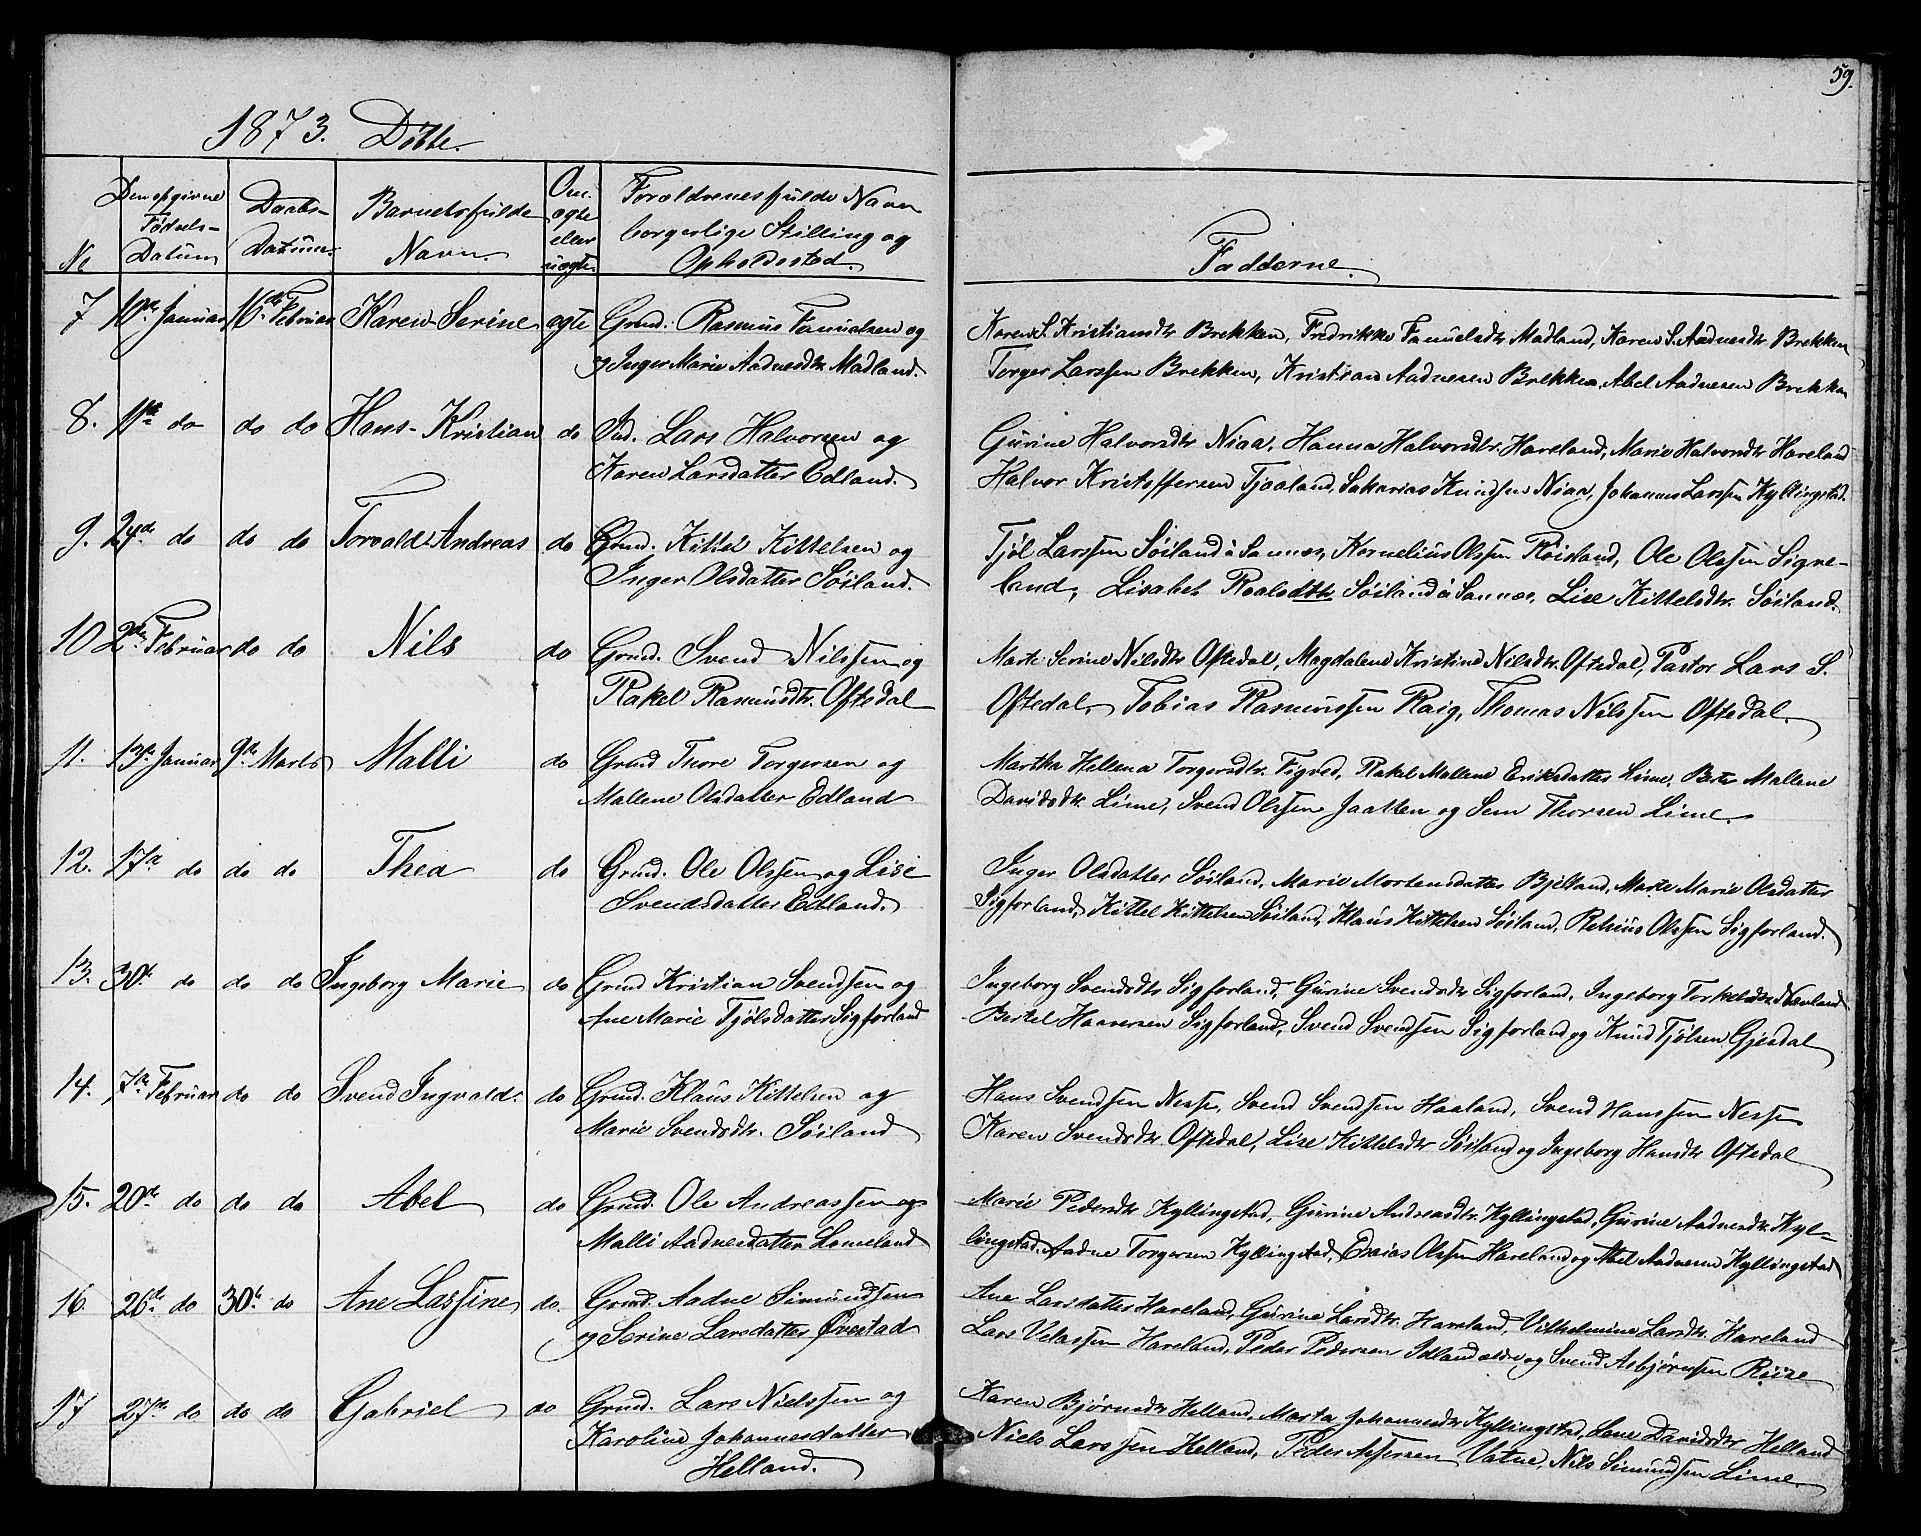 59.
1873. Döbte.
No
Den opgivne
Fødsels-
Datum
Daabs-
Datum.
Barnets fulde
Navn.
Om
ægte
eller
uægte.
Forældrenes fulde Navn
borgerlige Stilling og
Opholdssted.
Fadderne.
7 10de Januar 16de Februar Karen Serine ægte Grmd. Rasmus Samuelsen og
og Inger Marie Aadnesdtr. Madland.
Karen S. Kristiansdtr Brekken, Fredrikke Samuelsdtr Madland, Karen S. Aadnesdtr Brekken
Torger Larssen Brekken, Kristian Aadnesen Brekken, Abel Aadnesen Brekken
8. 11te do do do Hans Kristian do Ind. Lars Halvorsen og
Karen Larsdatter Edland.
Gurine Halvorsdtr Niaa, Hanna Halvorsdtr. Haveland, Marie Halvorsdtr Haveland
Halvor Kristoffersen Tjaaland, Sakarias Knudsen Niaa, Johannes Larssen Kyllingstad.
9. 24de do do do Torvald Andreas do Grmd. Kittel Kittelsen og
Inger Olsdatter Søiland.
Tjøl Larssen Søiland à Sannes, Kornelius Olssen Røisland, Ole Olssen Sigve-
land, Lisabet Roalsdtr Søiland à Sannes, Lise Kittelsdtr. Søiland.
10 2den Februar do do Nils do Grmd. Svend Nilssen og
Rakel Rasmusdtr. Oftedal
Marte Serine Nilsdtr Oftedal, Magdalene Kristine Nilsdtr. Oftedal, Pastor Lars S.
Oftedal, Tobias Rasmussen Raig, Thomas Nilssen Oftedal.
11. 13de Januar 9de Marts Malli do Grmd Tore Torgersen og
Mallene Olsdatter Edland
Martha Hellena Torgersdtr. Figved, Rakel Mallene Eriksdatter Lime, Berte Mallene
Davidsdtr. Lime, Svend Olssen Jaatten og Sem Thorsen Lime.
12. 17de do do do Thea do Grmd. Ole Olssen og Lise
Svendsdatter Edland.
Inger Olsdatter Søiland, Marie Mortensdatter Bjelland, Marte Marie Olsdatter
Sigforland, Kittel Kittelsen Søiland, Klaus Kittelsen Søiland, Reinius Olssen Sigforland.
13. 30te do do do Ingeborg Marie do Grmd Kristian Svendsen og
Ane Marie Tjølsdatter Sigforland
Ingeborg Svendsdtr Sigforland, Gurine Svendsdtr Sigforland, Ingeborg Torkelsdtr Nævland
Bertel Haaversen Sigforland, Svend Svendsen Sigforland og Knud Tjølsen Gjesdal
14. 7de Februar do do Svend Ingvald do Grmd. Klaus Kittelsen og
Marie Svendsdtr. Søiland
Hans Svendsen Nesse, Svend Svendsen Haaland, Svend Hanssen Nesse
Karen Svendsdtr Oftedal, Lise Kittelsdtr Søiland og Ingeborg Hansdtr Oftedal
15. 20de do do do Abel do Grmd. Ole Andreassen og
Malli Aadnesdatter Lomeland
Marie Pedersdtr Kyllingstad, Gurine Andreasdtr. Kyllingstad, Gurine Aadnesdtr Kyl=
lingstad. Aadne Torgersen Kyllingstad, Esaias Olssen Haveland og Abel Aadnesen Kyllingstad
16. 26de do 30te do Ane Lassine do. Grmd. Aadne Simundsen
og Serine Larsdatter Øvestad
Ane Larsdatter Haveland, Gurine Larsdtr. Haveland, Vilhelmine Larsdtr. Haveland
Lars Velassen Haveland, Peder Pedersen Idland ældre og Svend Asbjørnsen Riise
17 27de do do do Gabriel do Grmd. Lars Nielssen og
Karoline Johannesdatter
Helland.
Karen Bjørnsdtr Helland, Marta Johannesdtr Kyllingstad, Lene Davidsdtr Helland
Niels Larssen Helland, Peder Assersen Vatne, Nils Simundsen Lime.